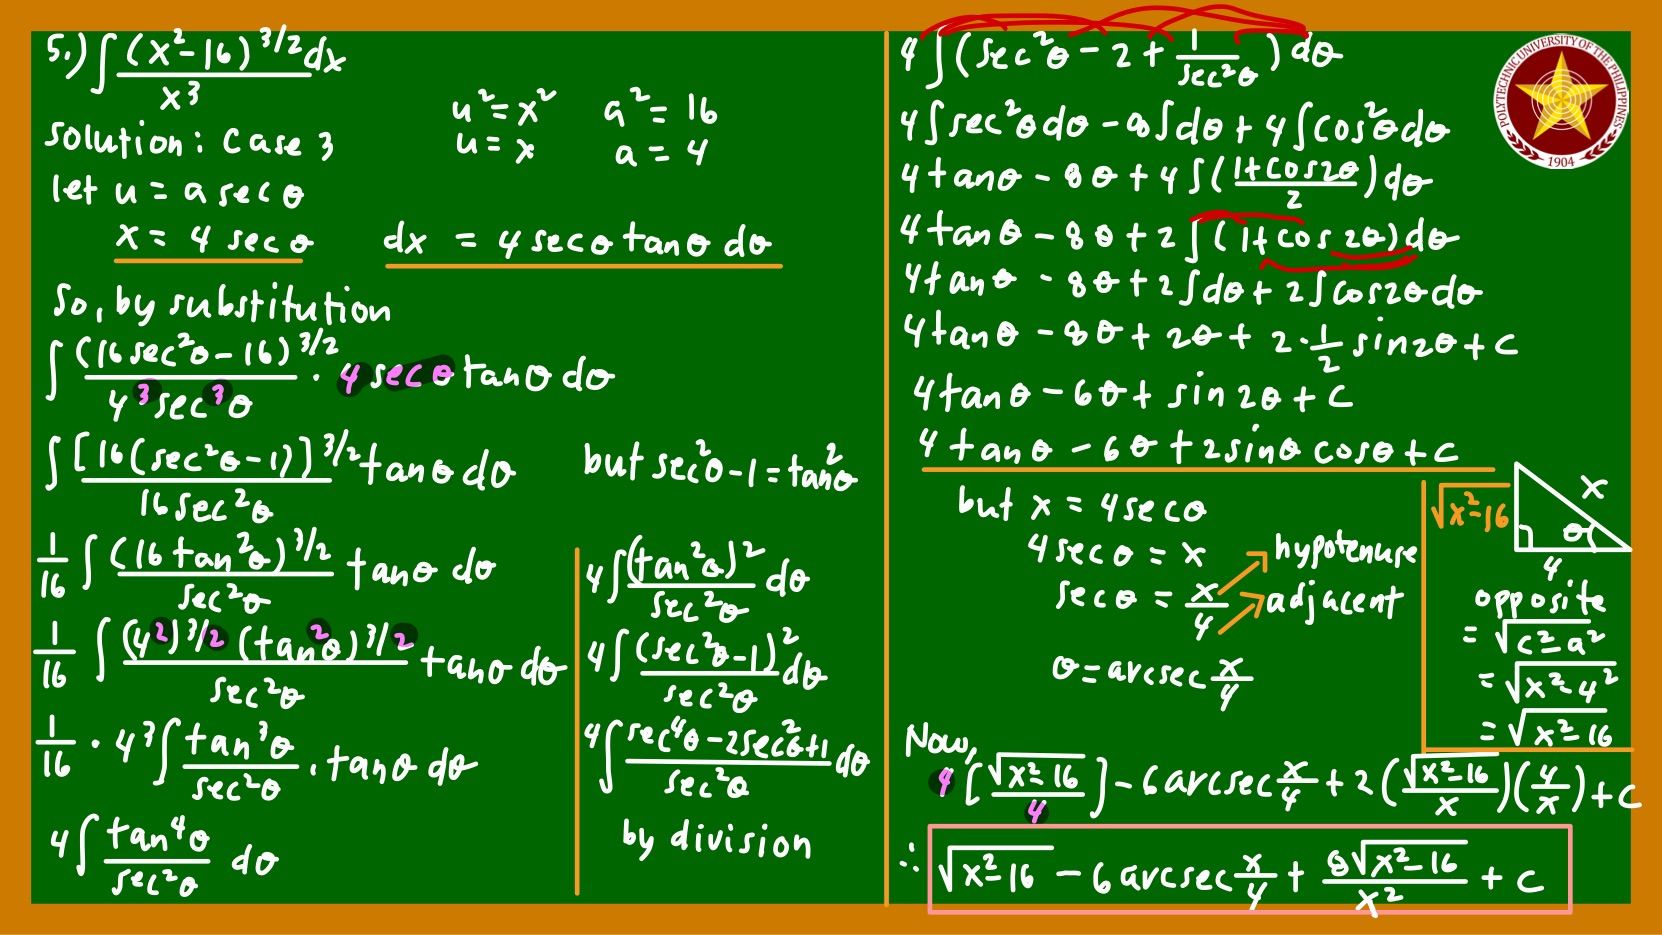 5.) ∫ (x²-16)^3/2 dx / x³
solution: case 3
u² = x² a² = 16
u = x a = 4
let u = a secθ
x = 4 secθ dx = 4 secθ tanθ dθ
So, by substitution
∫ (16 sec²θ - 16)^3/2 / 4³ sec³θ · 4 secθ tanθ dθ
∫ [16(sec²θ - 1)]^3/2 / 16 sec²θ tanθ dθ but sec²θ - 1 = tan²θ
1/16 ∫ (16 tan²θ)^3/2 / sec²θ tanθ dθ
1/16 ∫ (4²)^3/2 (tan²θ)^3/2 / sec²θ tanθ dθ
1/16 · 4³ ∫ tan³θ / sec²θ · tanθ dθ
4 ∫ tan⁴θ / sec²θ dθ
4 ∫ (tan²θ)² / sec²θ dθ
4 ∫ (sec²θ - 1)² / sec²θ dθ
4 ∫ sec⁴θ - 2sec²θ + 1 / sec²θ dθ
by division
4 ∫ (sec²θ - 2 + 1/sec²θ) dθ
4 ∫ sec²θ dθ - 8 ∫ dθ + 4 ∫ cos²θ dθ
4 tanθ - 8θ + 4 ∫ (1 + cos2θ / 2) dθ
4 tanθ - 8θ + 2 ∫ (1 + cos 2θ) dθ
4 tanθ - 8θ + 2 ∫ dθ + 2 ∫ cos2θ dθ
4 tanθ - 8θ + 2θ + 2 · 1/2 sin2θ + C
4 tanθ - 6θ + sin 2θ + C
4 tanθ - 6θ + 2 sinθ cosθ + C
but x = 4 secθ
4 secθ = x
secθ = x/4
hypotenuse
adjacent
θ = arcsec x/4
√x²-16 x
θ
4
opposite
= √c²-a²
= √x²-4²
= √x²-16
Now,
4 [√x²-16 / 4] - 6 arcsec x/4 + 2 (√x²-16 / x)(4/x) + C
∴ √x²-16 - 6 arcsec x/4 + 8√x²-16 / x² + C
POLYTECHNIC UNIVERSITY OF THE PHILIPPINES
1904